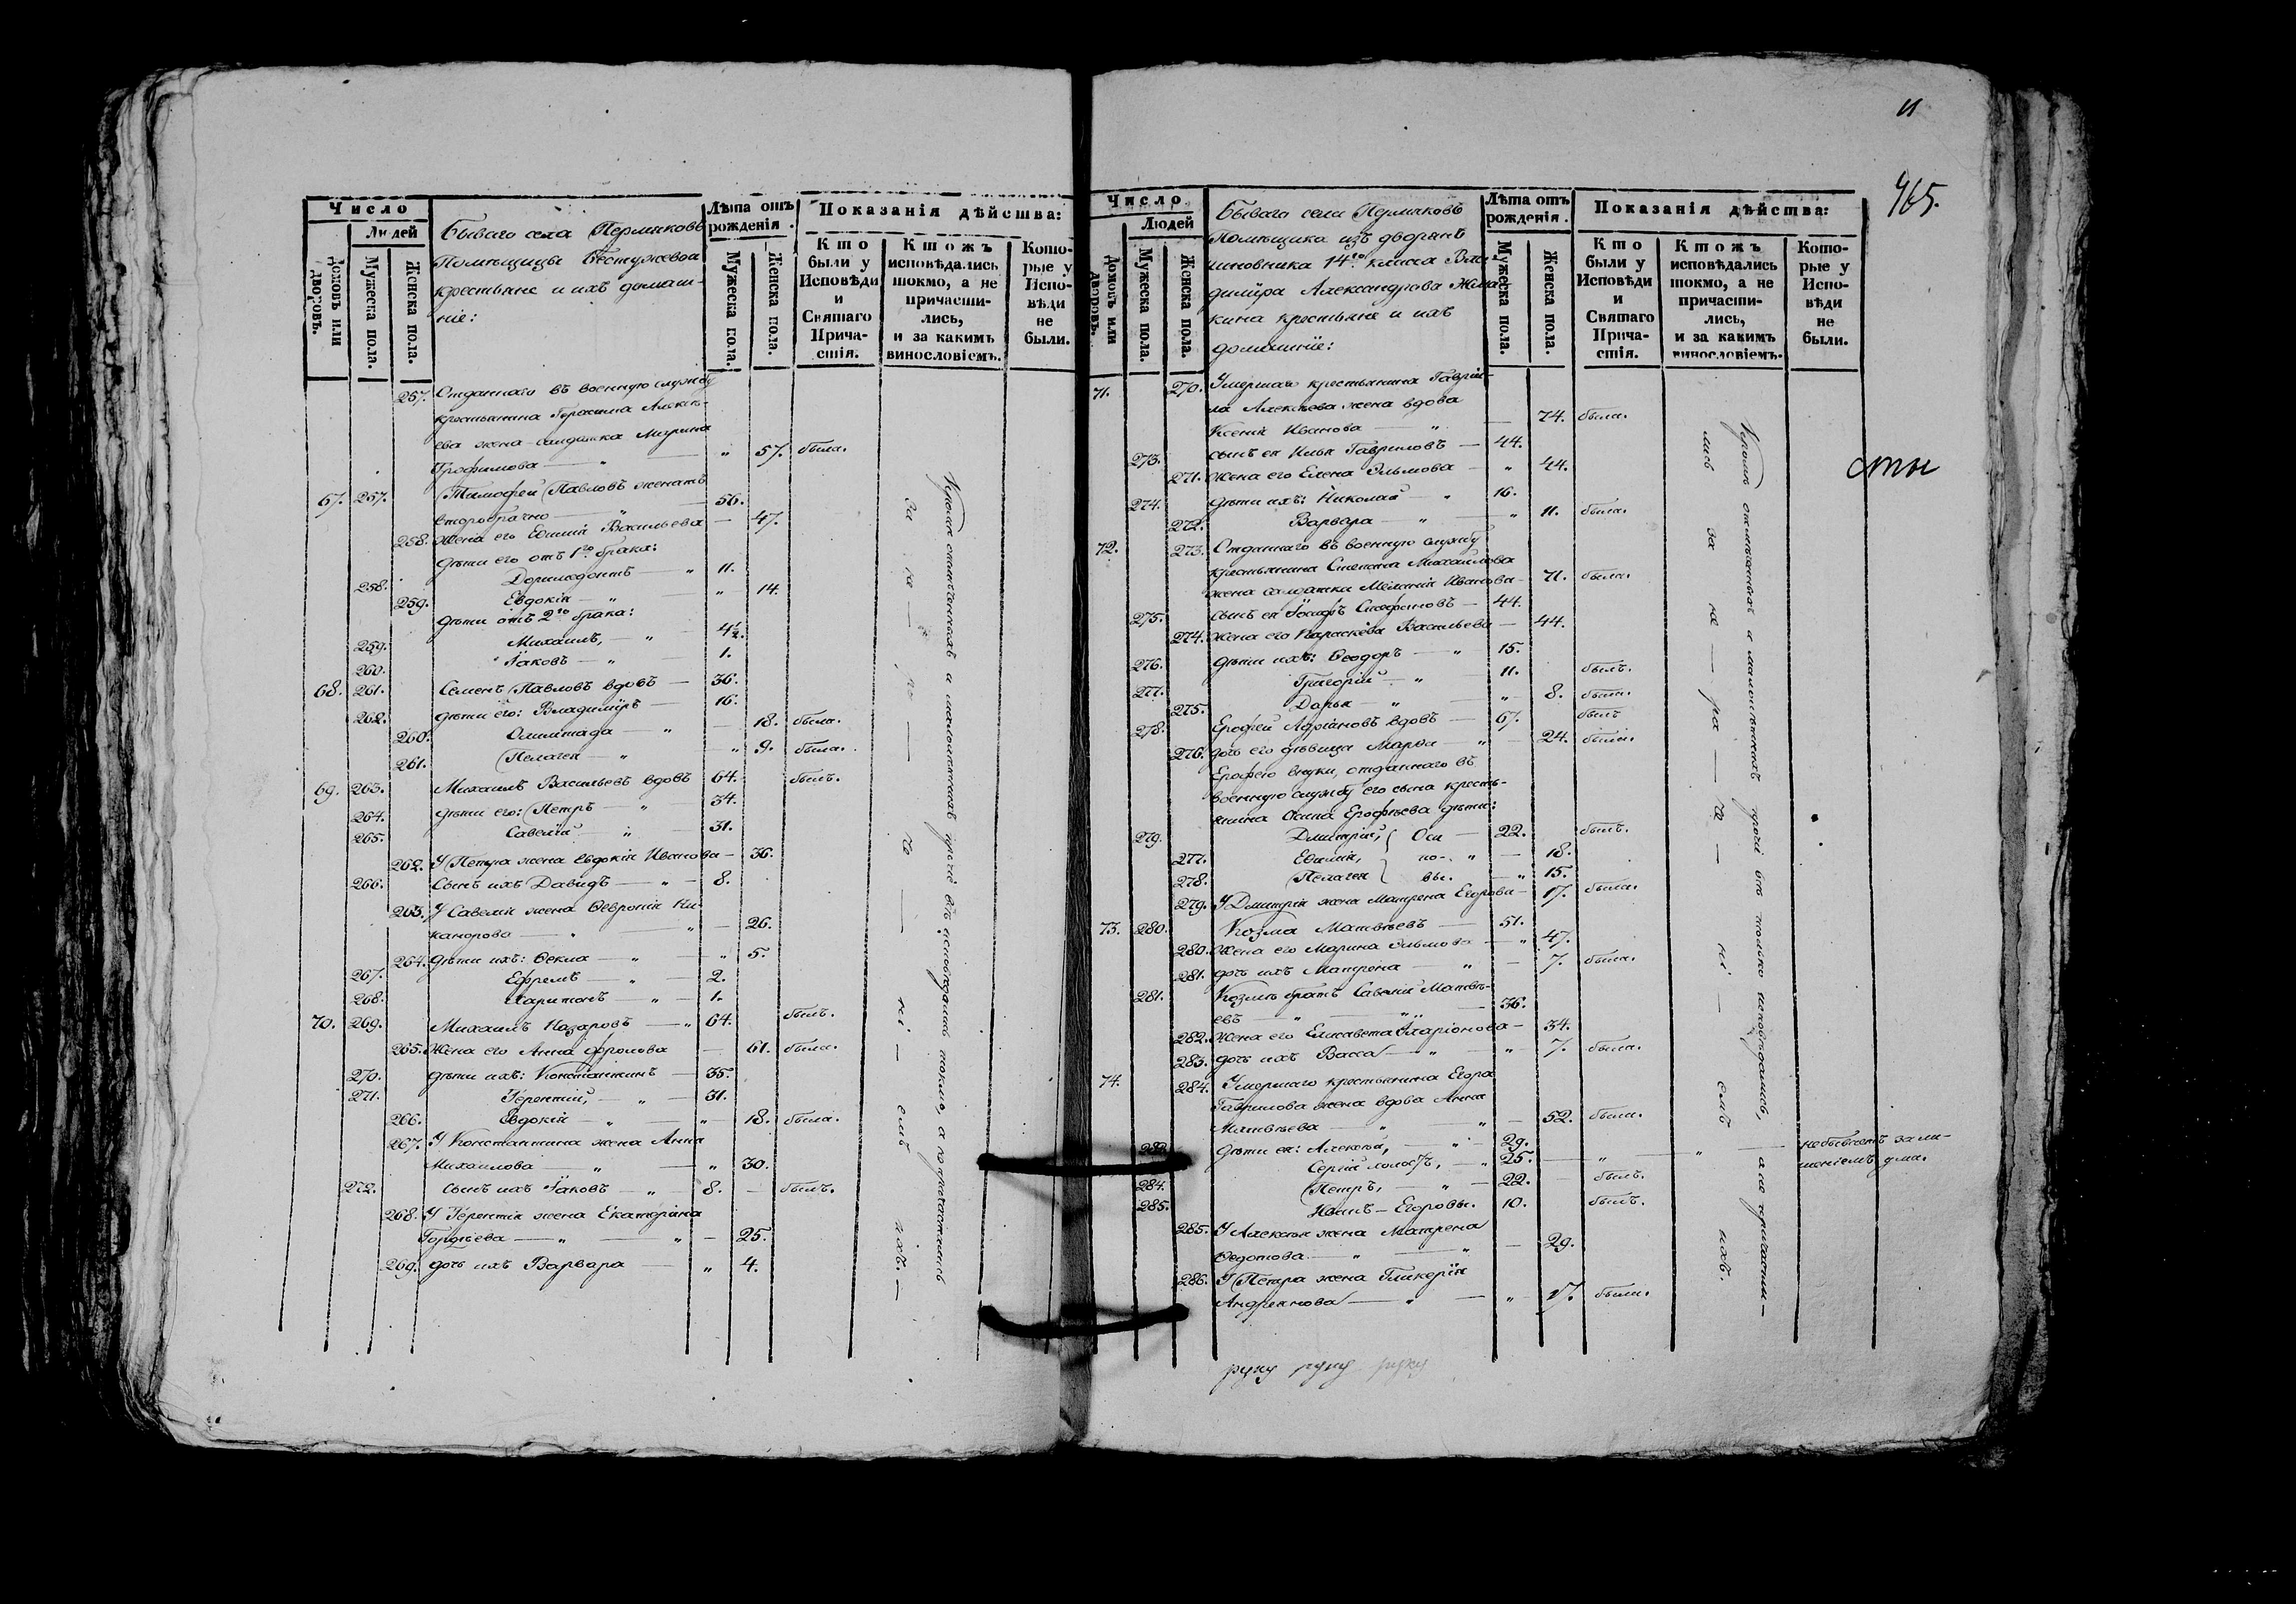 Число
Людей
Домовъ или дворовъ.
Мужеска пола.
Женска пола.
Бываго села Пермяковъ
Помѣщицы Бестужевой
крестьяне и ихъ домаш-
нiе:
Лѣта отъ рожденiя.
Мужеска пола.
Женска пола.
Показанiя дѣйства:
Кто были у Исповѣди и Святаго Прича-стiя.
Ктожъ исповѣдались токмо, а не причасти-лись, и за какимъ винословiемъ.
Кото-рые у Испо-вѣди не были.
257. Отданнаго въ военную службу
крестьянина Герасима Алексѣ-
ева жена солдатка Марина
Трофимова — " — " 57. была.
67. 257. Тимофей Павловъ женатъ
второбрачно — " — 56.
258. Жена его Евфимiя Васильева — 47.
дѣти его отъ 1го брака:
258. Доримедонтъ — " 11.
259. Евдокiя — " — " 14.
дѣти отъ 2го брака:
259. Михаилъ, — " — 4½.
260. Iаковъ — " — 1.
68. 261. Семенъ Павловъ вдовъ — 36.
262. дѣти его: Владимiръ — 16.
260. Олимпiада — " — 18. была.
261. Пелагея — " — " 9. была.
69. 263. Михаилъ Васильевъ вдовъ 64. былъ.
264. дѣти его: Петръ — " 34.
265. Савелiй — " 31.
262. У Петра жена Евдокiя Иванова — 36.
266. Сынъ ихъ Давидъ — " — 8.
263. У Савелiя жена Ѳеврониiя Ни-
канорова — " — " — 26.
264. дѣти ихъ: Ѳекла — " — " 5.
267. Ефремъ — " — 2.
268. Харитонъ — " — 1.
70. 269. Михаилъ Назаровъ — " 64. былъ.
265. Жена его Анна Фролова — 61. была.
270. дѣти ихъ: Константинъ — 35.
271. Терентiй, — " — 31.
266. Евдокiя — " — " 18. была.
267. У Константина жена Анна
Михайлова — " — " 30.
272. сынъ ихъ Iаковъ — " — 8. — былъ.
268. У Терентiя жена Екатерина
Гордѣева — " — " — 25.
269. дочь ихъ Варвара — " 4.
Кромѣ отмѣченныхъ и малолѣтнихъ прочiе всѣ исповѣдались токмо, а не причастились
за не — ра — че — нi — емъ ихъ. —
11
465.
Число
Людей
Домовъ или дворовъ.
Мужеска пола.
Женска пола.
Бываго села Пермяковъ
Помѣщика изъ дворянъ
чиновника 14го класса Вла-
димiра Александрова
крестьяне и ихъ
домашнiе:
Лѣта отъ рожденiя.
Мужеска пола.
Женска пола.
Показанiя дѣйства:
Кто были у Исповѣди и Святаго Прича-стiя.
Ктожъ исповѣдались токмо, а не причасти-лись, и за какимъ винословiемъ.
Кото-рые у Испо-вѣди не были.
71. 270. Умершаго крестьянина Гаврiи-
ла Алексѣева жена вдова
Ксенiя Иванова — " — 74. была.
273. сынъ ея Илья Гавриловъ — 44.
271. Жена его Елена Ѳльмова — " 44.
274. дѣти ихъ: Николай — " 16.
272. Варвара — " — " 11. была.
72. 273. Отданнаго въ военную службу
крестьянина Степана Михайлова
жена солдатка Меланiя Иванова — 71. была.
275. сынъ ея Iосифъ Стефановъ — 44.
274. Жена его Параскева Васильева — 44.
276. дѣти ихъ: Ѳеодоръ — " 15.
277. Григорiй — " 11. былъ.
275. Дарья — " — " 8. была.
278. Ерофей Адрiановъ вдовъ — 67. былъ
276. дочь его дѣвица Марѳа — " — 24. была.
Ерофею внуки, отданнаго въ
военную службу его сына кресть-
янина Осипа Ерофѣева дѣти:
279. Дмитрiй, Оси — 22. былъ.
277. Евфимiя, по- " — 18.
278. Пелагея вы. — " 15.
279. У Дмитрiя жена Матрена Егорова — 17. была.
73. 280. Козма Матвѣевъ — 51.
280. Жена его Марина — " 47.
281. дочь ихъ Матрена — " — 7. была.
281. Козмы братъ Савелiй Матвѣ-
евъ — " — " — 36.
282. Жена его Елисавета Иларiонова — 34.
283. дочь ихъ Васса — " — " 7. была.
74. 284. Умершаго крестьянина Егора
Гаврилова жена вдова Анна
Матвѣева — " — " — 52. была.
282. дѣти ея: Алексѣй, — " — 29.
Сергiй холостъ, — " 25. — " — " — небывшемъ за ли-
шенiемъ ума.
284. Петръ, — " — 22. — былъ.
285. Иванъ — Егоровы. 10. былъ.
285. У Алексѣя жена Матрена
Ѳедотова — " — " — 29.
286. У Петра жена Гликерiя
Андреянова — " — " 17. была.
Кромѣ отмѣченныхъ и малолѣтнихъ прочiе всѣ только исповѣдались, — а не причасти-
лись за не — ра — че — нi — емъ ихъ.
руку руку руку